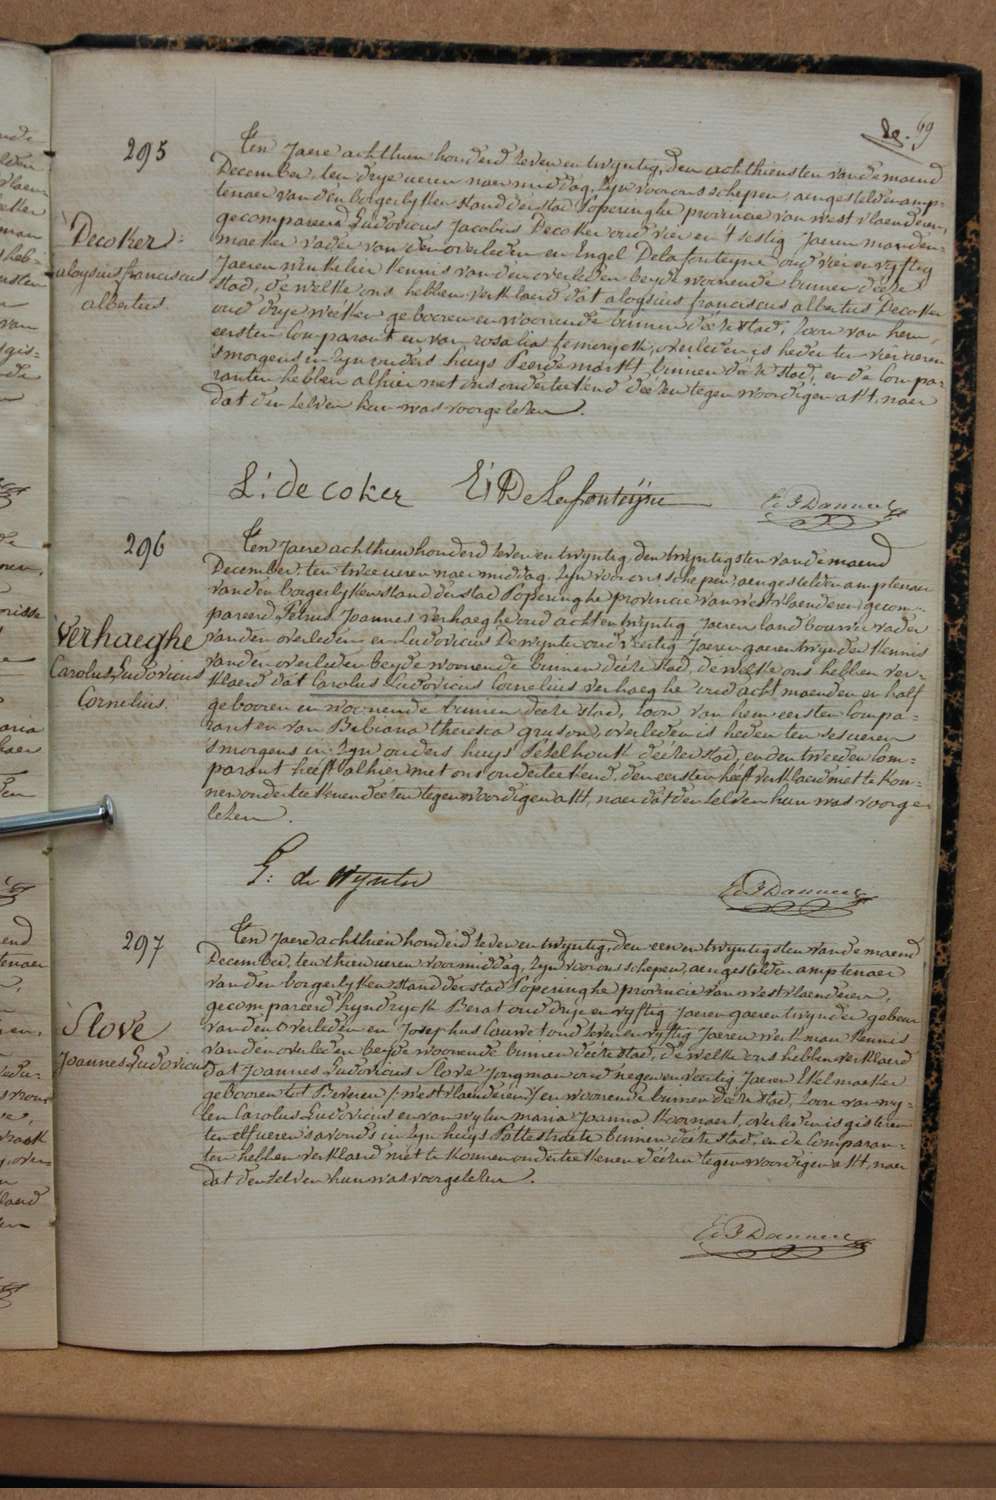 69
295
Decoker
aloysius franciscus
albertus
Ten Jaere achthien honderd zeven en twyntig, den achthiensten van de maend
December, ten drye ueren naer middag, Zyn voor ons schepen, aengestelden amp-
tenaer van den borgerlyken stand der stad Poperinghe provincie van westvlaenderen,
gecompareerd Ludovicus Jacobus Decoker oud vier en t'sestig Jaeren manden-
maeker vader van den overleden en Engel Delafonteyne oud vier en vyftig
Jaeren winkelier kennis van den overleden beyde woonende binnen deeze
stad, de welke ons hebben verklaerd dat aloysius franciscus albertus Decoker
oud drye weeken gebooren en woonende binnen deeze stad, zoon van hem
eersten Comparant en van rosalia femeryck, overleden is heden ten vier ueren
smorgens in Zyn ouders huys Peerdemarkt binnen deeze stad, en de Compa-
ranten hebben alhier met ons onderteekend deezen tegenwoordigen akt, naer
dat den zelven hun was voorgelezen.
L: de coker E: De Lafonteyne
296
Verhaeghe
Carolus Ludovicus
Cornelius
Ten Jaere achthien honderd zeven en twyntig den twyntigsten van de maend
December, ten twee ueren naer middag, Zyn voor ons schepen, aengestelden amptenaer
van den borgerlyken stand der stad Poperinghe provincie van westvlaenderen, gecom-
pareerd Petrus Joannes verhaeghe oud acht en twyntig Jaeren landbouwer vader
van den overleden en Ludovicus Dewynter oud veertig Jaeren gaerentwynder kennis
van den overleden beyde woonende binnen deeze stad, de welke ons hebben ver-
klaerd dat Carolus Ludovicus Cornelius verhaeghe oud acht maenden en half
gebooren en woonende binnen deeze stad, zoon van hem eersten Compa-
rant en van Bibiana theresia gruson, overleden is heden ten ses ueren
smorgens in Zyn ouders huys Pezelhouk deezer stad, en den tweeden Com-
parant heeft alhier met ons onderteekend, den eersten heeft verklaerd niet te kon-
nen onderteekenen deezen tegenwoordigen akt, naer dat den zelven hun was voorge-
lezen.
L: de Wynter
297
Slove
Joannes Ludovicus
Ten Jaere achthien honderd zeven en twyntig, den een en twyntigsten van de maend
December, ten thien ueren voormiddag, Zyn voor ons schepen, aengestelden amptenaer
van den borgerlyken stand der stad Poperinghe provincie van westvlaenderen,
gecompareerd hyndryck Berat oud drye en vyftig Jaeren gaerentwynder gebeur
van den Overleden en Josephus Cauwet oud een en vyftig Jaeren werkman kennis
van den overleden beyde woonende binnen deeze stad, de welke ons hebben verklaerd
dat Joannes Ludovicus Slove Jongman oud negen en veertig Jaeren Ekelmaeker
gebooren tot Beveren /:westvlaenderen:/ en woonende binnen deeze stad, zoon van wy-
len Carolus Ludovicus en van wylen maria Joanna Koornaert, overleden is gisteren
ten elf ueren savonds in Zyn huys Pottestraete binnen deeze stad, en de Comparan-
ten hebben verklaerd niet te konnen onderteekenen deezen tegenwoordigen akt, naer
dat den zelven hun was voorgelezen.